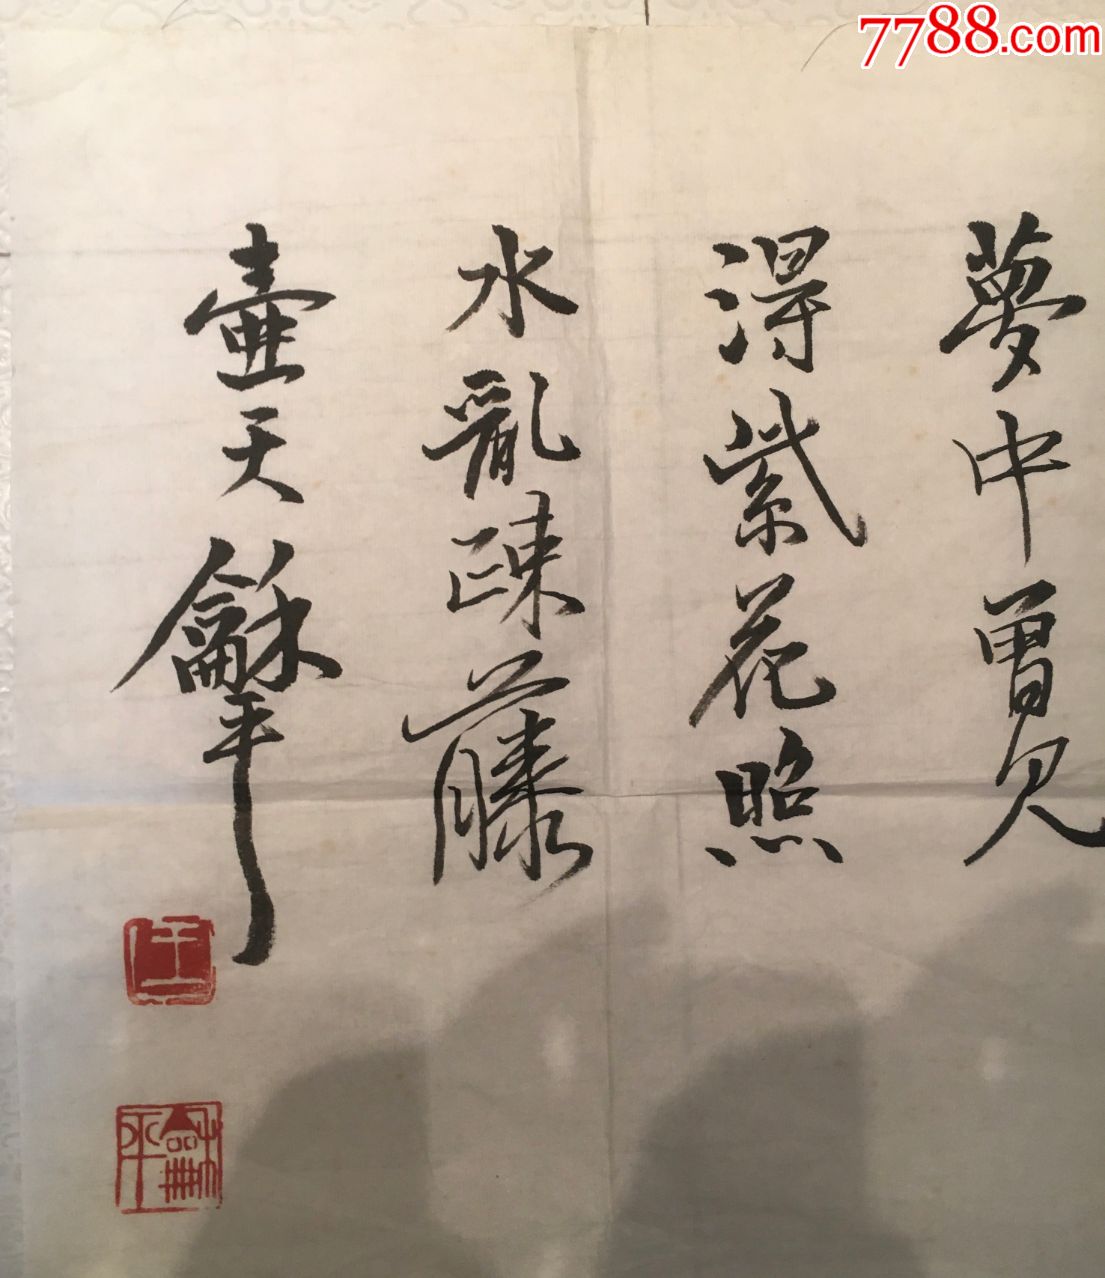 7788.com
夢中曽見
得紫花照
水亂疎藤
壷天龢平
任
龢平